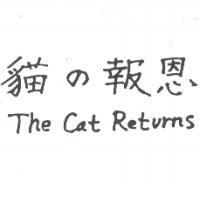 貓の報恩
The Cat Returns